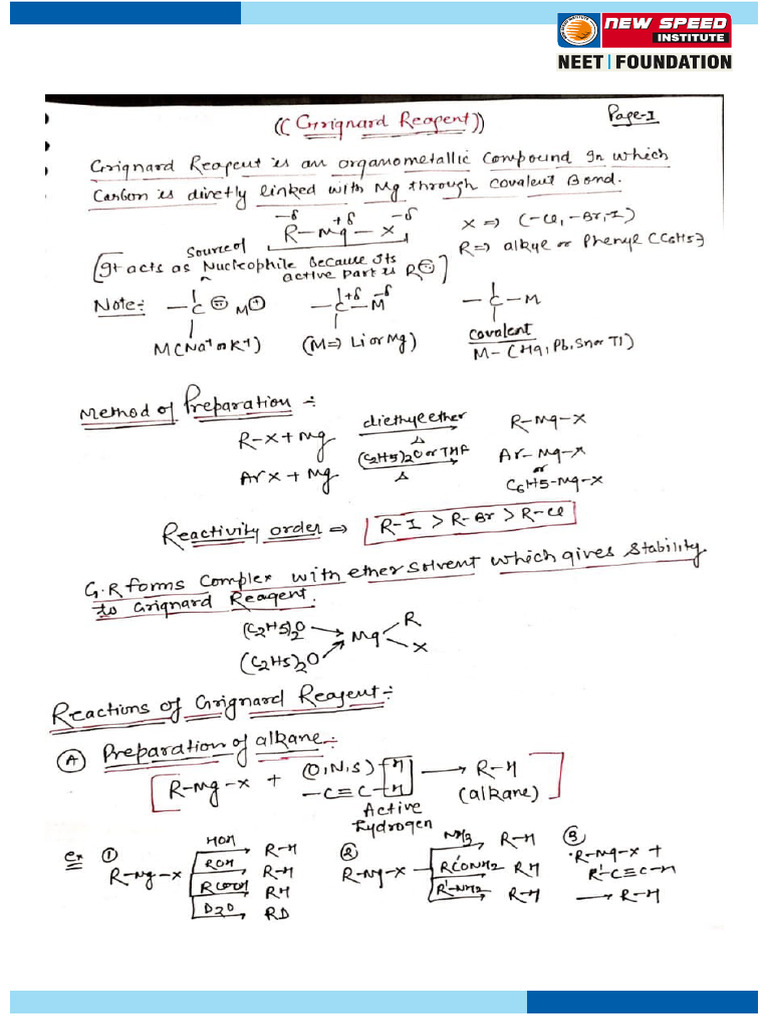 NEW SPEED
INSTITUTE
NEET | FOUNDATION
Page-1
((Grignard Reagent))
Grignard Reagent is an organometallic compound In which
Carbon is directly linked with Mg through covalent Bond.
-δ +δ -δ
R-Mg-X
X ⇒ (-Cl, -Br, I)
R ⇒ alkyl or Phenyl (C6H5)
[It acts as source of Nucleophile Because its
active part is R⊖]
Note:- -C⊖ M⊕ -C-M -C-M
+δ -δ
M(Na+ or K+) (M⇒ Li or Mg) Covalent
M-(Hg, Pb, Sn or Tl)
Method of Preparation ÷
R-X + Mg diethyl ether Δ → R-Mg-X
ArX + Mg (C2H5)2O or THF Δ → Ar-Mg-X
or
C6H5-Mg-X
Reactivity order ⇒ R-I > R-Br > R-Cl
G.R forms Complex with ether solvent which gives stability
to Grignard Reagent.
(C2H5)2O → Mg R
(C2H5)2O → X
Reactions of Grignard Reagent ÷
(A) Preparation of alkane:-
[R-Mg-X + (O,N,S)-H → R-H]
-C≡C-H (alkane)
Active
Hydrogen
Ex ① R-Mg-X
HOH → R-H
ROH → R-H
RCOOH → RH
D2O → RD
② R-Mg-X
NH3 → R-H
R'CONH2 → RH
R'-NH2 → R-H
③ R-Mg-X +
R'-C≡C-H
→ R-H